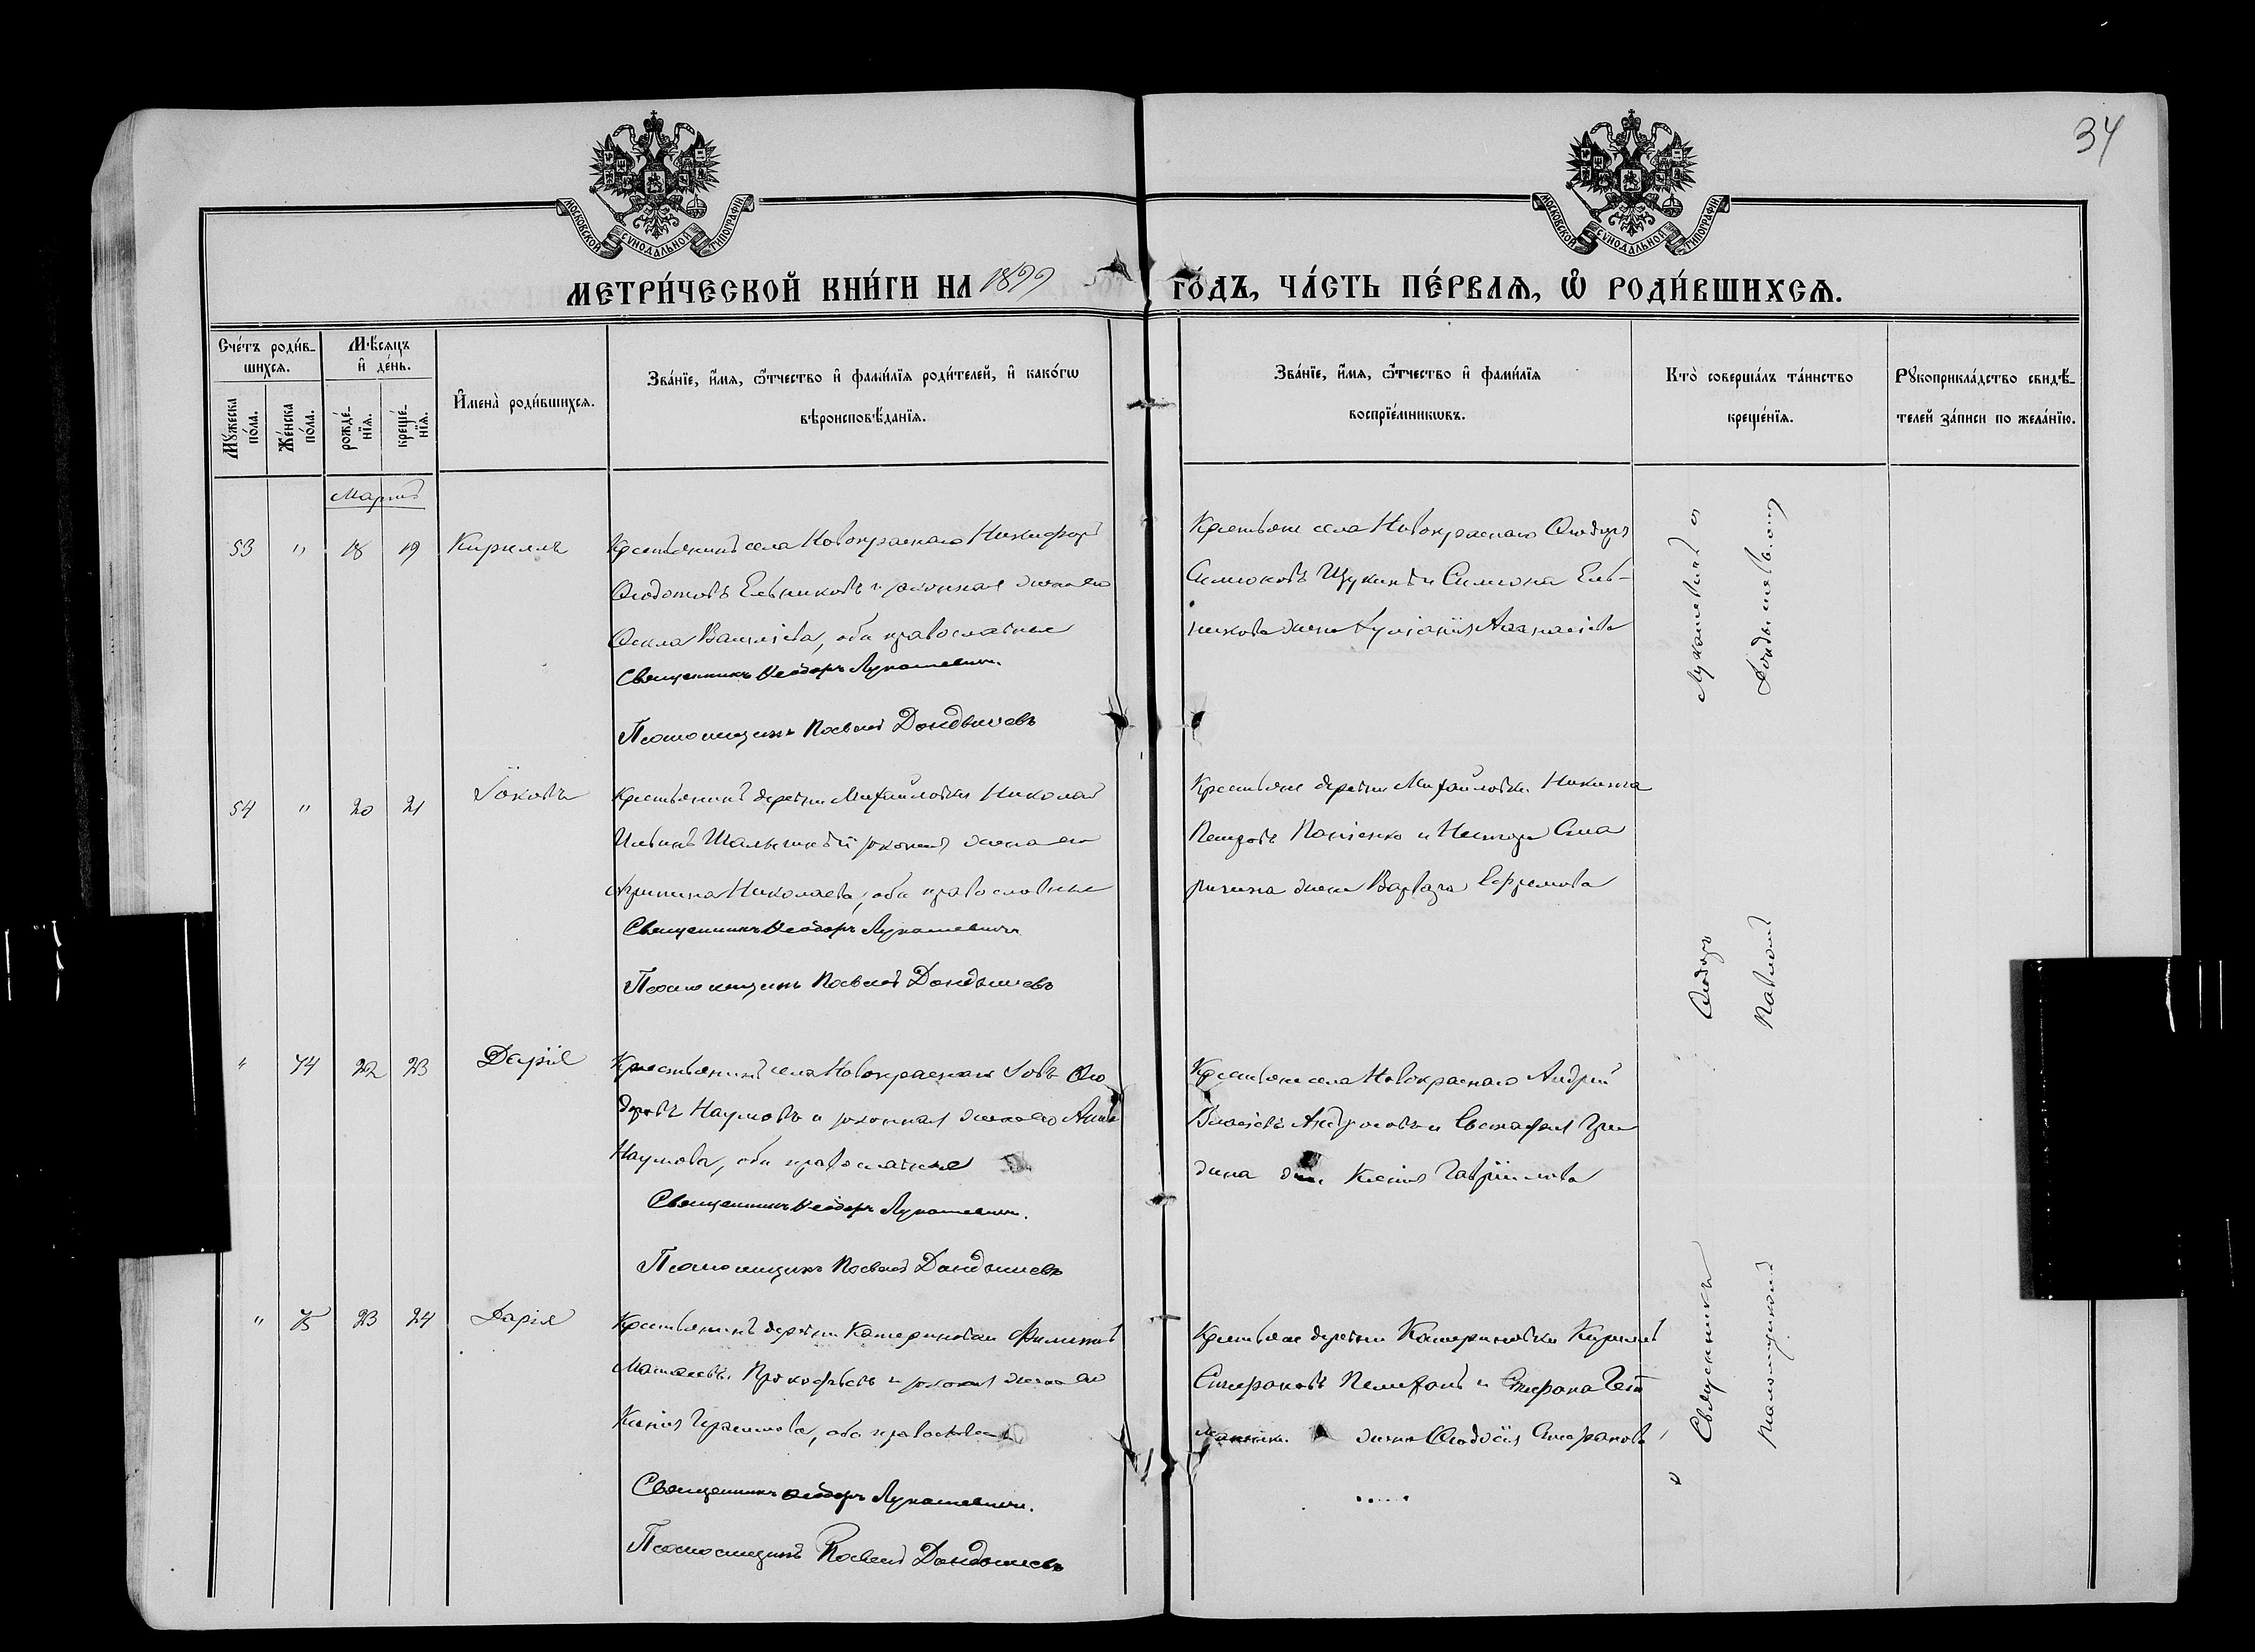 34
МОСКОВСКОЙ СѴНОДАЛЬНОЙ ТИПОГРАФІИ
МОСКОВСКОЙ СѴНОДАЛЬНОЙ ТИПОГРАФІИ
МЕТРИ́ЧЕСКОЙ КНИ́ГИ НА 1899 ГО́ДЪ, ЧА́СТЬ ПЕ́РВАѦ, Ѡ҆ РОДИ́ВШИХСѦ.
Сче́тъ роди́в-
шихся.
Мꙋ́жеска по́ла.
Же́нска по́ла.
Мѣ́сяцъ
и҆ де́нь.
рожде́-
нїя.
креще́-
нїя.
И҆мена̀ роди́вшихся.
Зва́нїе, и҆́мя, ѻ҆́тчество и҆ фами́лїя роди́телей, и҆ како́гѡ
вѣроисповѣ́данїя.
Зва́нїе, и҆́мя, ѻ҆́тчество и҆ фами́лїя
воспрїе́мникѡвъ.
Кто̀ соверша́лъ та́инство
креще́нїя.
Рꙋкоприкла́дство свидѣ́-
телей за́писи по жела́нїю.
Мартъ
53 " 18 19 Кириллъ
Крестьянинъ села Новокраснаго Никифоръ
Ѳеодотовъ Ельниковъ и законная жена его
Ѳекла Василіева, оба православные
Священникъ Ѳеодоръ Лукашевичъ.
Псаломщикъ Павелъ Дондышевъ
Крестьяне села Новокраснаго Ѳеодоръ
Симеоновъ Щукинъ и Симеона Ель-
никова жена Іуліанія Аѳанасіева
54 " 20 21 Іаковъ
Крестьянинъ деревни Михайловки Николай
Ильинъ и законная жена его
Николаева, оба православные
Священникъ Ѳеодоръ Лукашевичъ
Псаломщикъ Павелъ Дондышевъ
Крестьяне деревни Михайловки Никита
Петровъ и
жена Варвара Ефремова
" 74 22 23 Дарія
Крестьянинъ села Новокраснаго Іовъ Ѳео
доровъ Наумовъ и законная жена его Анна
Наумова, оба православные
Священникъ Ѳеодоръ Лукашевичъ.
Псаломщикъ Павелъ Дондышевъ
Крестьяне села Новокраснаго Андрей
Власіевъ и Евстафія
жена Ксенія Гавріилова
" 75 23 24 Дарія
Крестьянинъ деревни Катериновки Филиппъ
Матвеевъ Прокофьевъ и законная жена его
Ксенія Герасимова, оба православные
Священникъ Ѳеодоръ Лукашевичъ.
Псаломщикъ Павелъ Дондышевъ
Крестьяне деревни Катериновки Кириллъ
Стефановъ и Стефана
жена Ѳеодосія Стефанова
Священникъ Ѳеодоръ Лукашевичъ и
Псаломщикъ Павелъ Дондышевъ